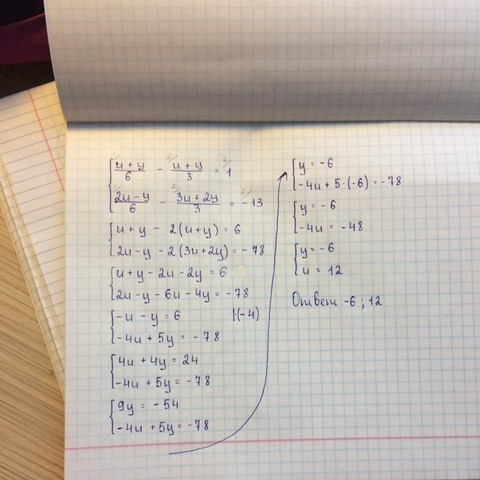 (u + y)/6 - (u + y)/3 = 1
(2u - y)/6 - (3u + 2y)/3 = -13
u + y - 2(u + y) = 6
2u - y - 2(3u + 2y) = -78
u + y - 2u - 2y = 6
2u - y - 6u - 4y = -78
-u - y = 6 |(-4)
-4u + 5y = -78
4u + 4y = 24
-4u + 5y = -78
9y = -54
-4u + 5y = -78
y = -6
-4u + 5·(-6) = -78
y = -6
-4u = -48
y = -6
u = 12
Ответ: -6; 12